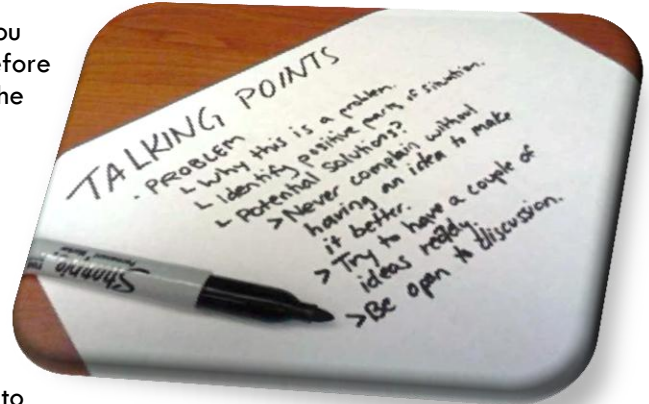 ou
efore
he
TALKING POINTS
· PROBLEM
↳ Why this is a problem.
↳ Identify positive parts of situation.
↳ Potential solutions?
> Never complain without
having an idea to make
it better.
> Try to have a couple of
ideas ready.
> Be open to discussion.
Sharpie
to